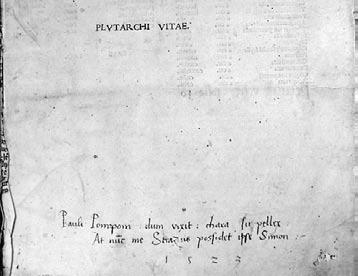 PLVTARCHI VITAE.
Pauli Pompom dum vixit: chara supellex
At nūc me Strazius possidet ipse Simon:
1523